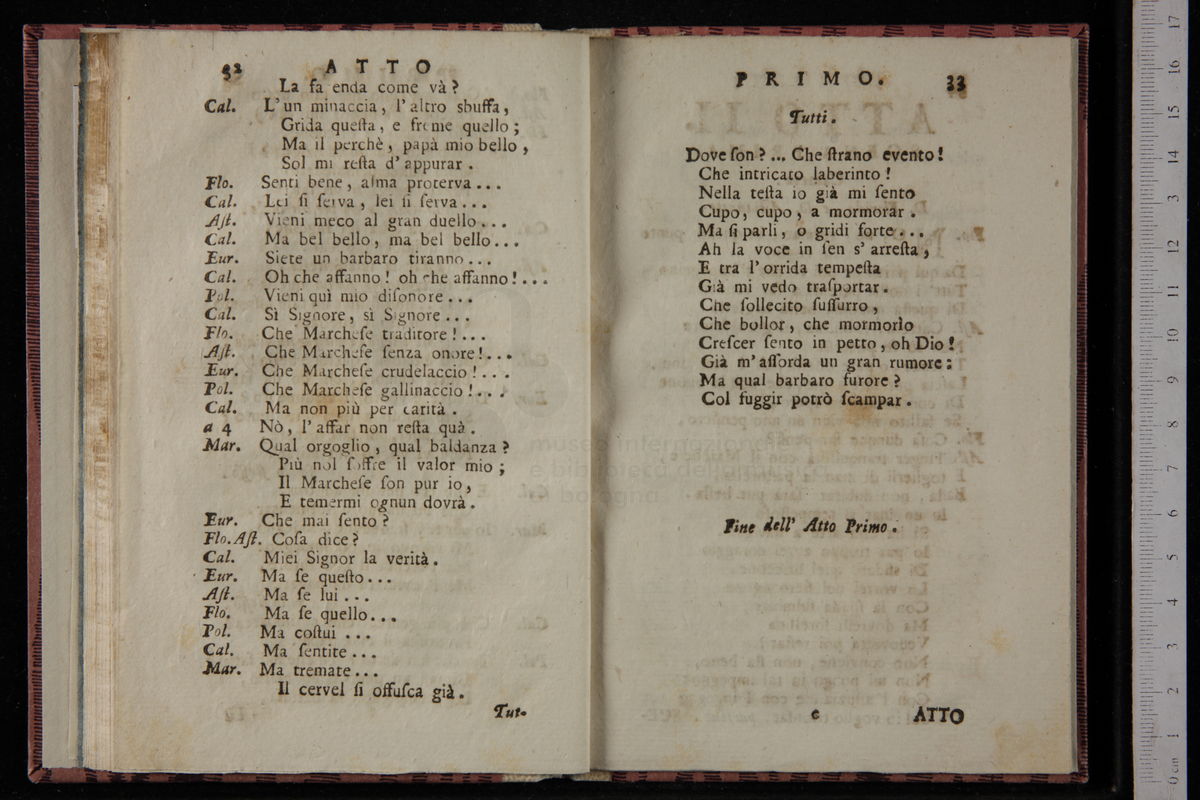 32 ATTO
La fa enda come và?
Cal. L'un minaccia, l'altro sbuffa,
Grida questa, e freme quello;
Ma il perchè, papà mio bello,
Sol mi resta d'appurar.
Flo. Senti bene, alma proterva...
Cal. Lei si serva, lei si serva...
Ast. Vieni meco al gran duello...
Cal. Ma bel bello, ma bel bello...
Eur. Siete un barbaro tiranno...
Cal. Oh che affanno! oh che affanno!...
Pol. Vieni quì mio disonore...
Cal. Sì Signore, sì Signore...
Flo. Che Marchese traditore!...
Ast. Che Marchese senza onore!...
Eur. Che Marchese crudelaccio!...
Pol. Che Marchese gallinaccio!...
Cal. Ma non più per carità.
a 4 Nò, l'affar non resta quà.
Mar. Qual orgoglio, qual baldanza?
Più nol soffre il valor mio;
Il Marchese son pur io,
E temermi ognun dovrà.
Eur. Che mai sento?
Flo. Ast. Cosa dice?
Cal. Miei Signor la verità.
Eur. Ma se questo...
Ast. Ma se lui...
Flo. Ma se quello...
Pol. Ma costui...
Cal. Ma sentite...
Mar. Ma tremate...
Il cervel si offusca già.
Tut-
PRIMO. 33
Tutti.
Dove son?... Che strano evento!
Che intricato laberinto!
Nella testa io già mi sento
Cupo, cupo, a mormorar.
Ma si parli, o gridi forte...
Ah la voce in sen s'arresta,
E tra l'orrida tempesta
Già mi vedo trasportar.
Che sollecito sussurro,
Che bollor, che mormorìo
Crescer sento in petto, oh Dio!
Già m'assorda un gran rumore:
Ma qual barbaro furore?
Col fuggir potrò scampar.
Fine dell' Atto Primo.
c ATTO
museo internazionale
e biblioteca della musica
bologna
17 16 15 14 13 12 11 10 9 8 7 6 5 4 3 2 1 0 cm